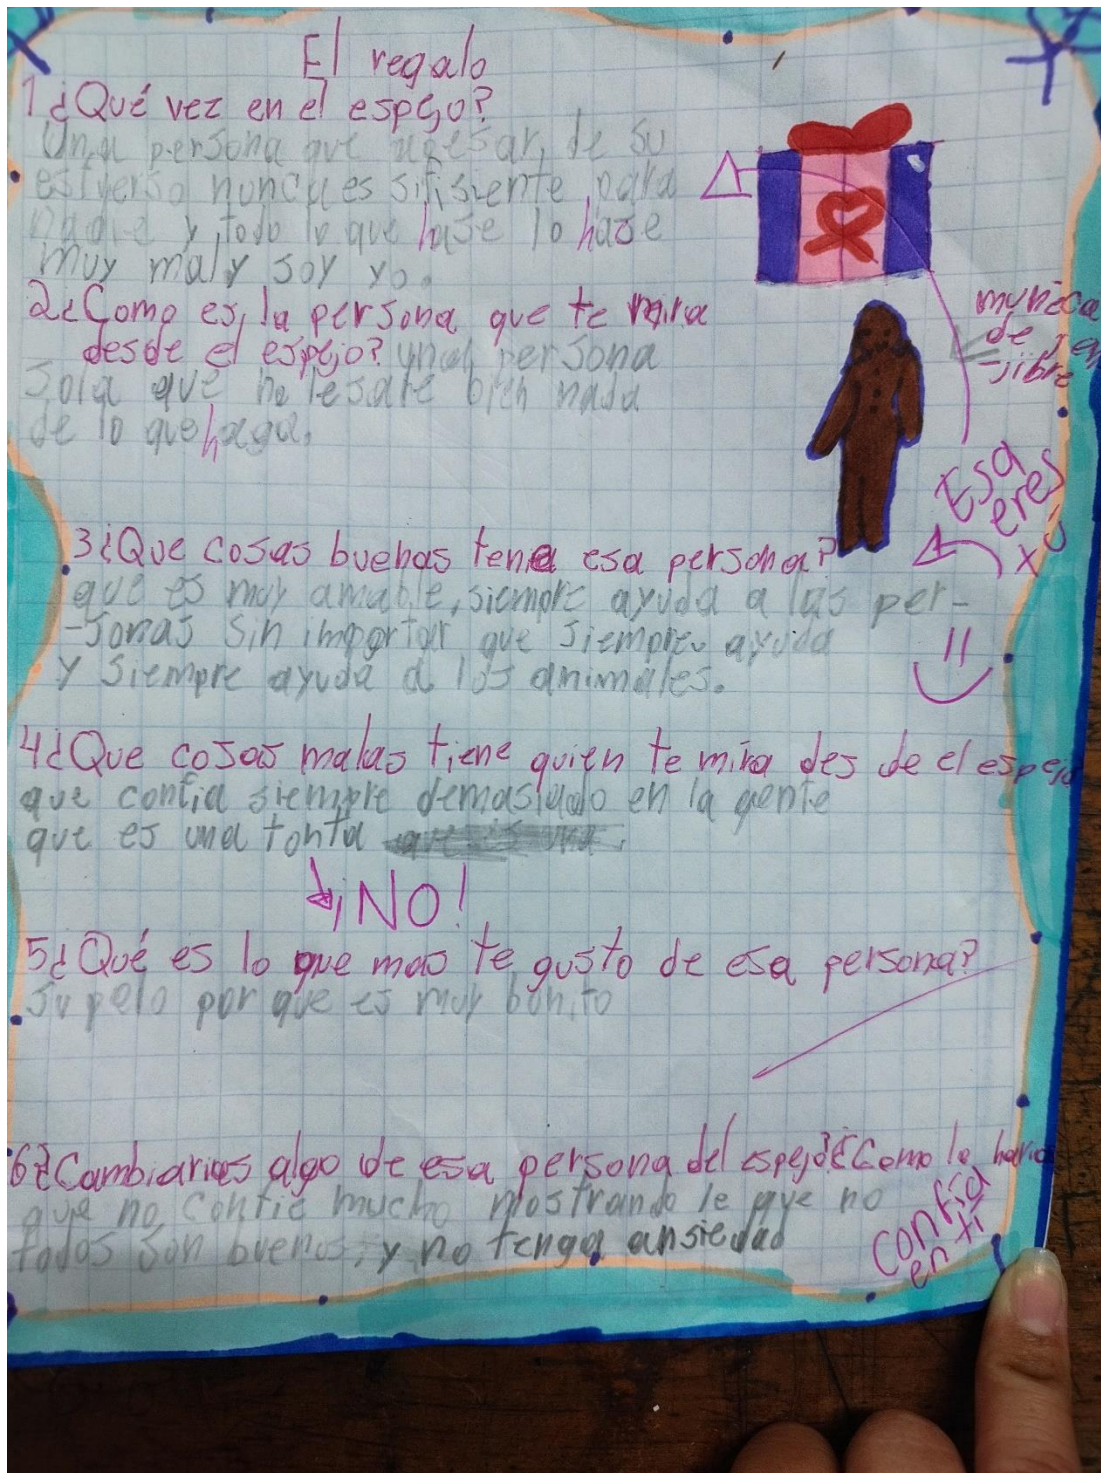 El regalo
1 ¿Qué vez en el espejo?
Una persona que apesar, de su
esfuerso nunca es sifisiente para
nadie y todo lo que hase lo hase
muy mal y soy yo.
2¿Como es la persona que te mira
desde el espejo? una persona
sola que no le sale bien nada
de lo que haga.
muñeca
de jen
-jibre
Esa
eres
tú
3¿Que cosas buenas tene esa persona?
que es muy amable, siempre ayuda a las per-
-sonas sin importar que siempre ayuda
y siempre ayuda a los animales.
4¿Que cosas malas tiene quien te mira des de el espejo
que confia siempre demasiado en la gente
que es una tonta
¡NO!
5¿Qué es lo que mas te gusto de esa persona?
su pelo por que es muy bonito
6¿Cambiarias algo de esa persona del espejo?¿Como lo harias
que no confie mucho mostrando le que no
todos son buenos, y no tenga ansiedad
confia
en ti